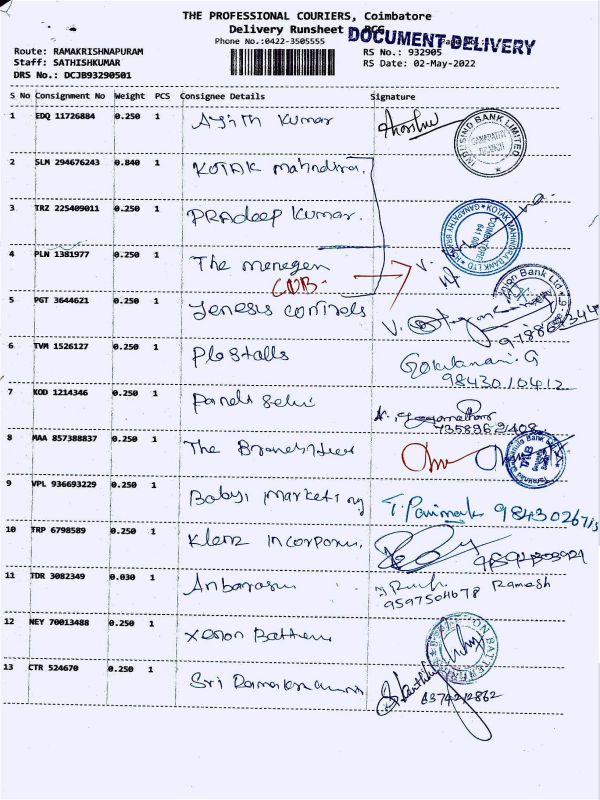 THE PROFESSIONAL COURIERS, Coimbatore
Delivery Runsheet
Phone No.:0422-3505555
DOCUMENT DELIVERY
Route: RAMAKRISHNAPURAM
Staff: SATHISHKUMAR
DRS No.: DCJB93290501
RS No.: 932905
RS Date: 02-May-2022
S No Consignment No Weight PCS Consignee Details Signature
1 EDQ 11726884 0.250 1 Ajith Kumar
INDUSIND BANK LIMITED GANAPATHY BRANCH
2 SLM 294676243 0.840 1 KOTAK mahndira.
3 TRZ 225409011 0.250 1 PRadeep Kumar.
KOTAK MAHINDRA BANK LTD COIMBATORE 641 006
4 PLN 1381977 0.250 1 The menegen
CNB.
5 PGT 3644621 0.250 1 Jenesis controls
Union Bank
6 TVM 1526127 0.250 1 Plostalls Gokulamani.G
9843010412
7 KOD 1214346 0.250 1
8 MAA 857388837 0.250 1 The
TMB
9 VPL 936693229 0.250 1 Babys marketing
10 TRP 6798589 0.250 1 Klenz
11 TDR 3082349 0.030 1 Anbarasu
Ramesh
9597504678
12 NEY 70013488 0.250 1 Xenon
13 CTR 524670 0.250 1 Sri
6374212862